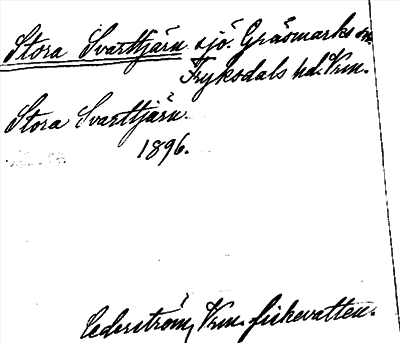 Stora Svarttjärn sjö. Gräsmarks sn.
Fryksdals hd. Vrm.
Stora Svarttjärn.
1896.
Cederström, Vrm. fiskevatten.